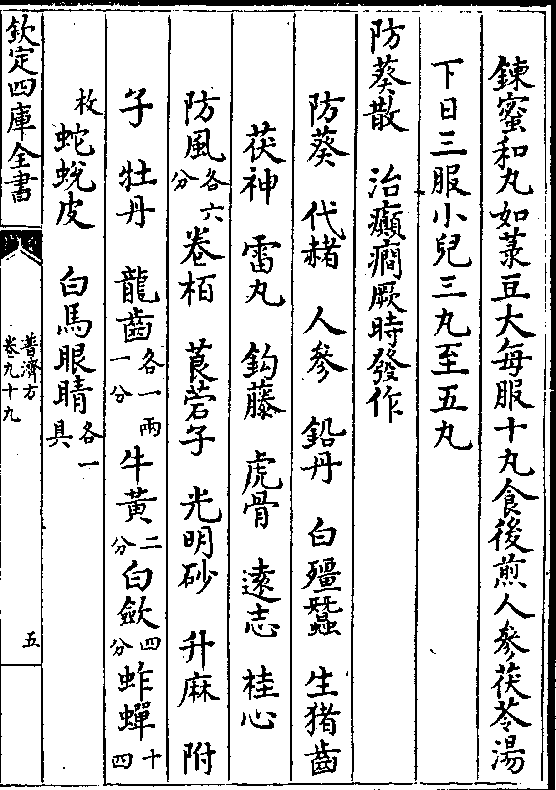 鍊蜜和丸如菉豆大每服十丸食後煎人參茯苓湯
下日三服小兒三丸至五丸
防葵散　治癲癎厥時發作
防葵　代赭　人參　鉛丹　白殭蠶　生猪齒
茯神　雷丸　鈎藤　虎骨　遠志　桂心
防風各六分　卷栢　莨菪子　光明砂　升麻　附
子　牡丹　龍齒各一兩一分　牛黃二分　白斂四分　蚱蟬十四
枚　蛇蛻皮　白馬眼睛各一具
欽定四庫全書
普濟方
卷九十九
五